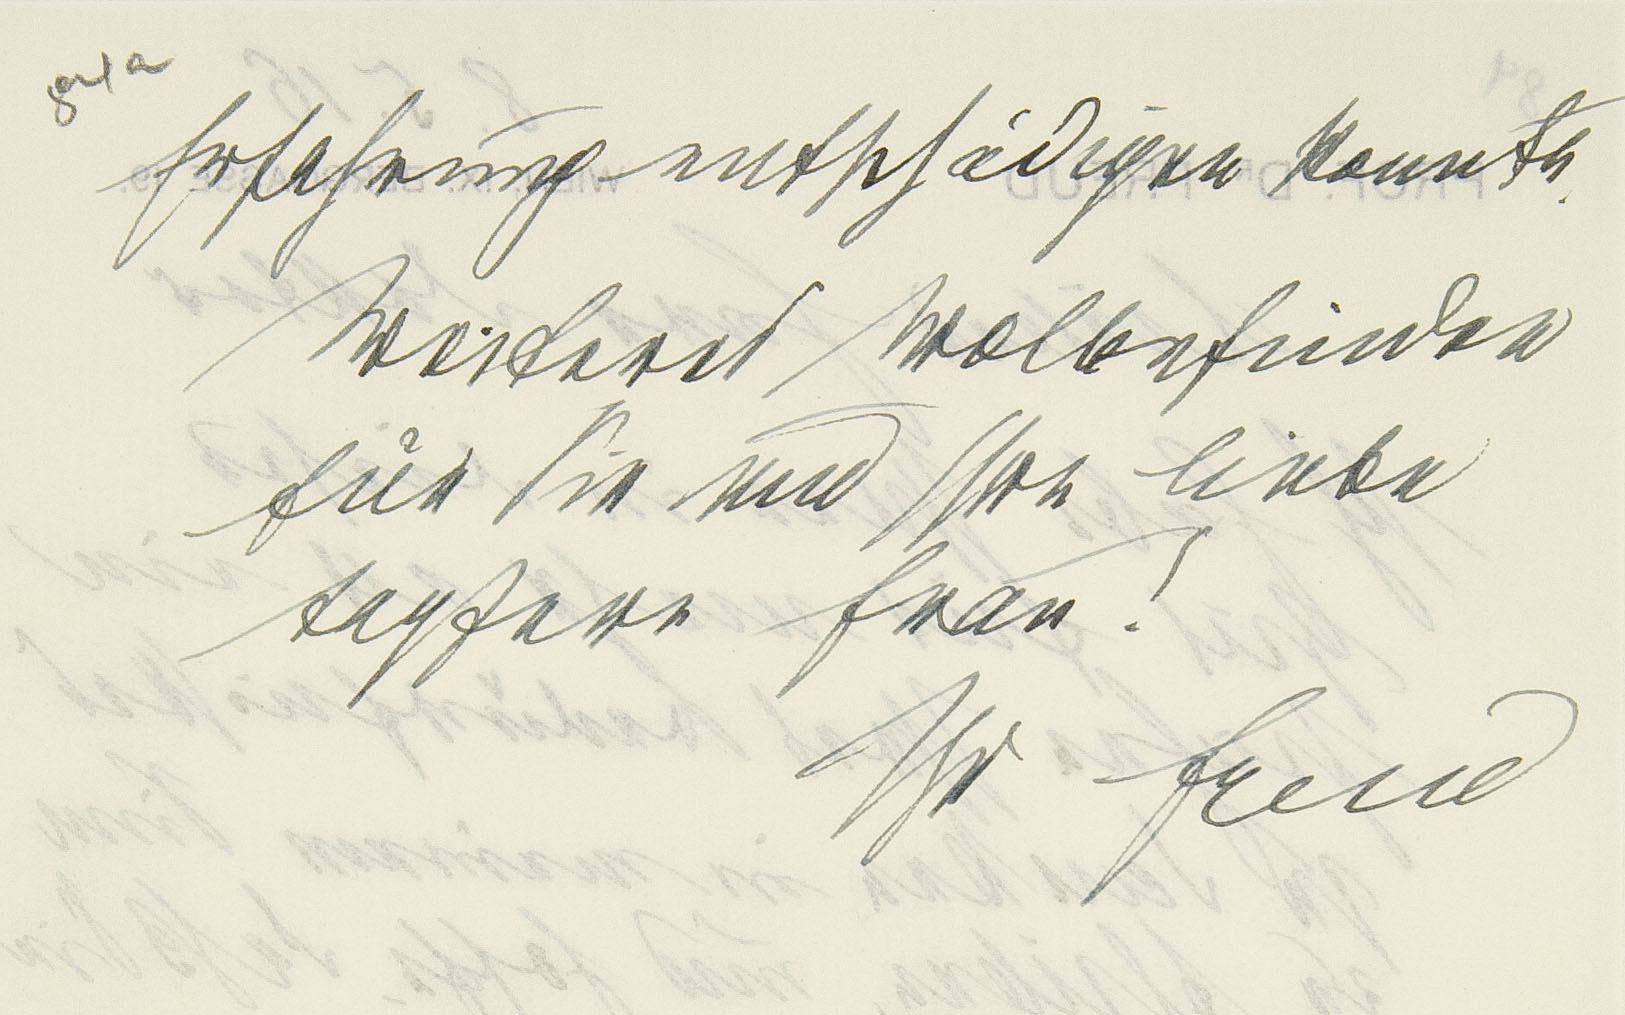 Erfahrung entschädigen konnte.
Weiteres Wolbefinden
für Sie und Ihre liebe
tapfere Frau!
Ihr Freud